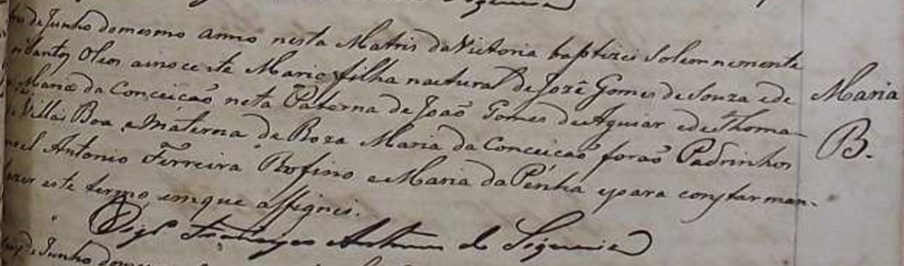 de Junho do mesmo anno nesta Matris da Victoria baptizei Solemnemente
Santos Oleos a inocente Maria filha natural de Jozé Gomes de Souza e de
Maria da Conceição neta Paterna de João Gomes de Aguiar e de Thoma-
Villas Boa e Materna de Roza Maria da Conceição forão Padrinhos
Antonio Ferreira Rofino e Maria da Penha epara constar man-
este termo emque assignei.
Maria
B.
Vig.º Francisco Antunes de Siqueira
de Junho do mes